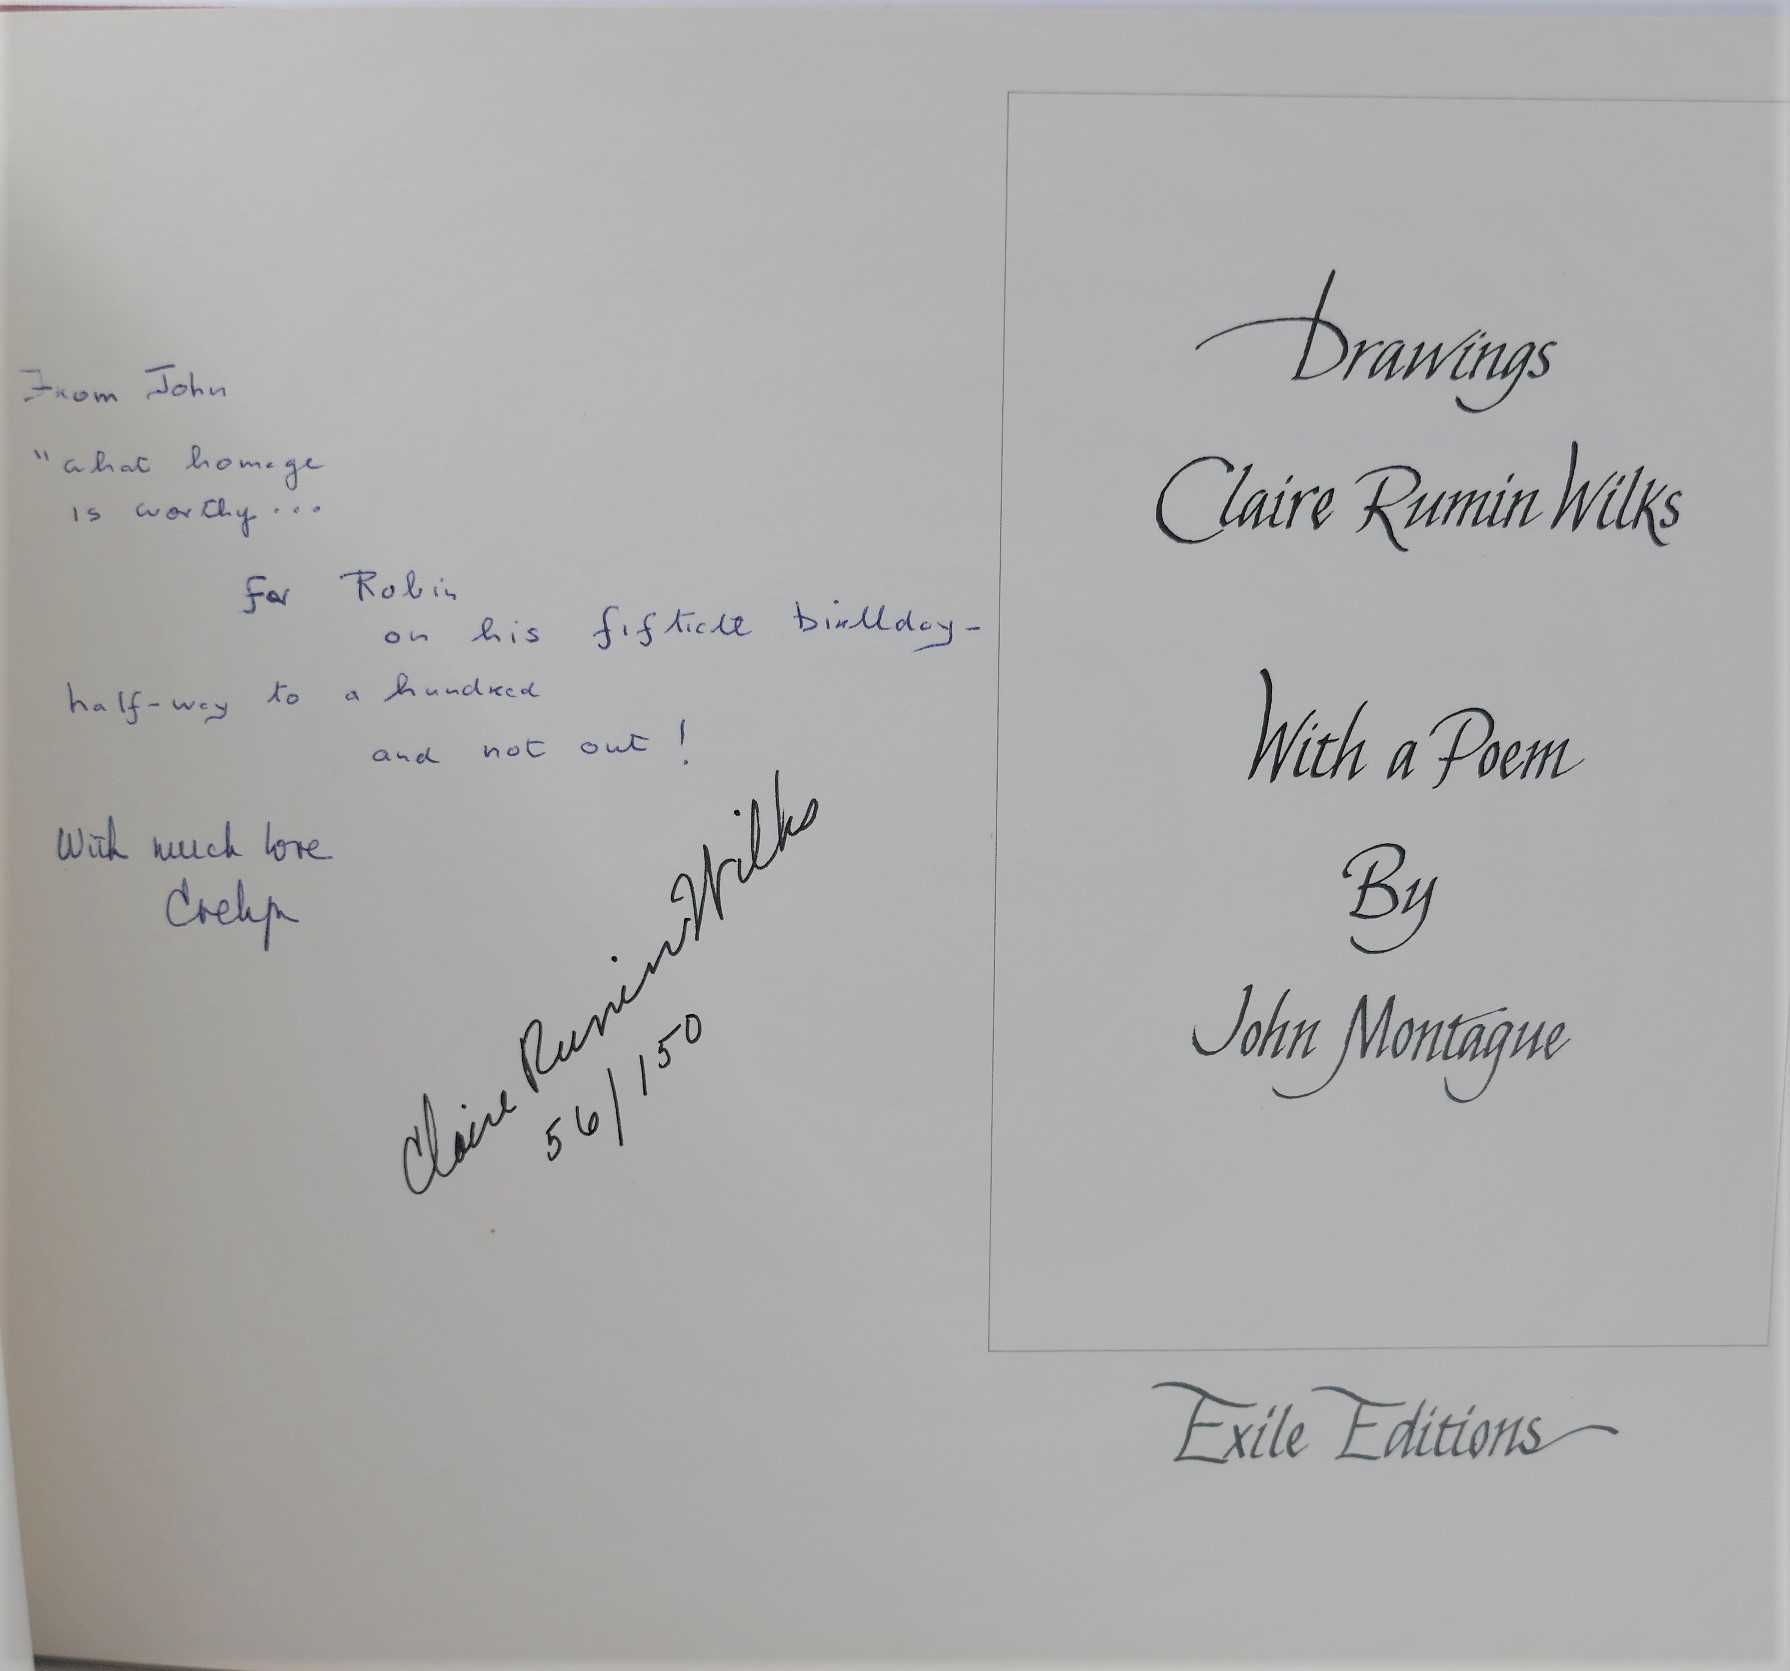 From John
"what homage
is worthy...
for Robin
on his fiftieth birthday-
half-way to a hundred
and not out!
With much love
Evelyn
Claire Rumin Wilks
56/150
Drawings
Claire Rumin Wilks
With a Poem
By
John Montague
Exile Editions